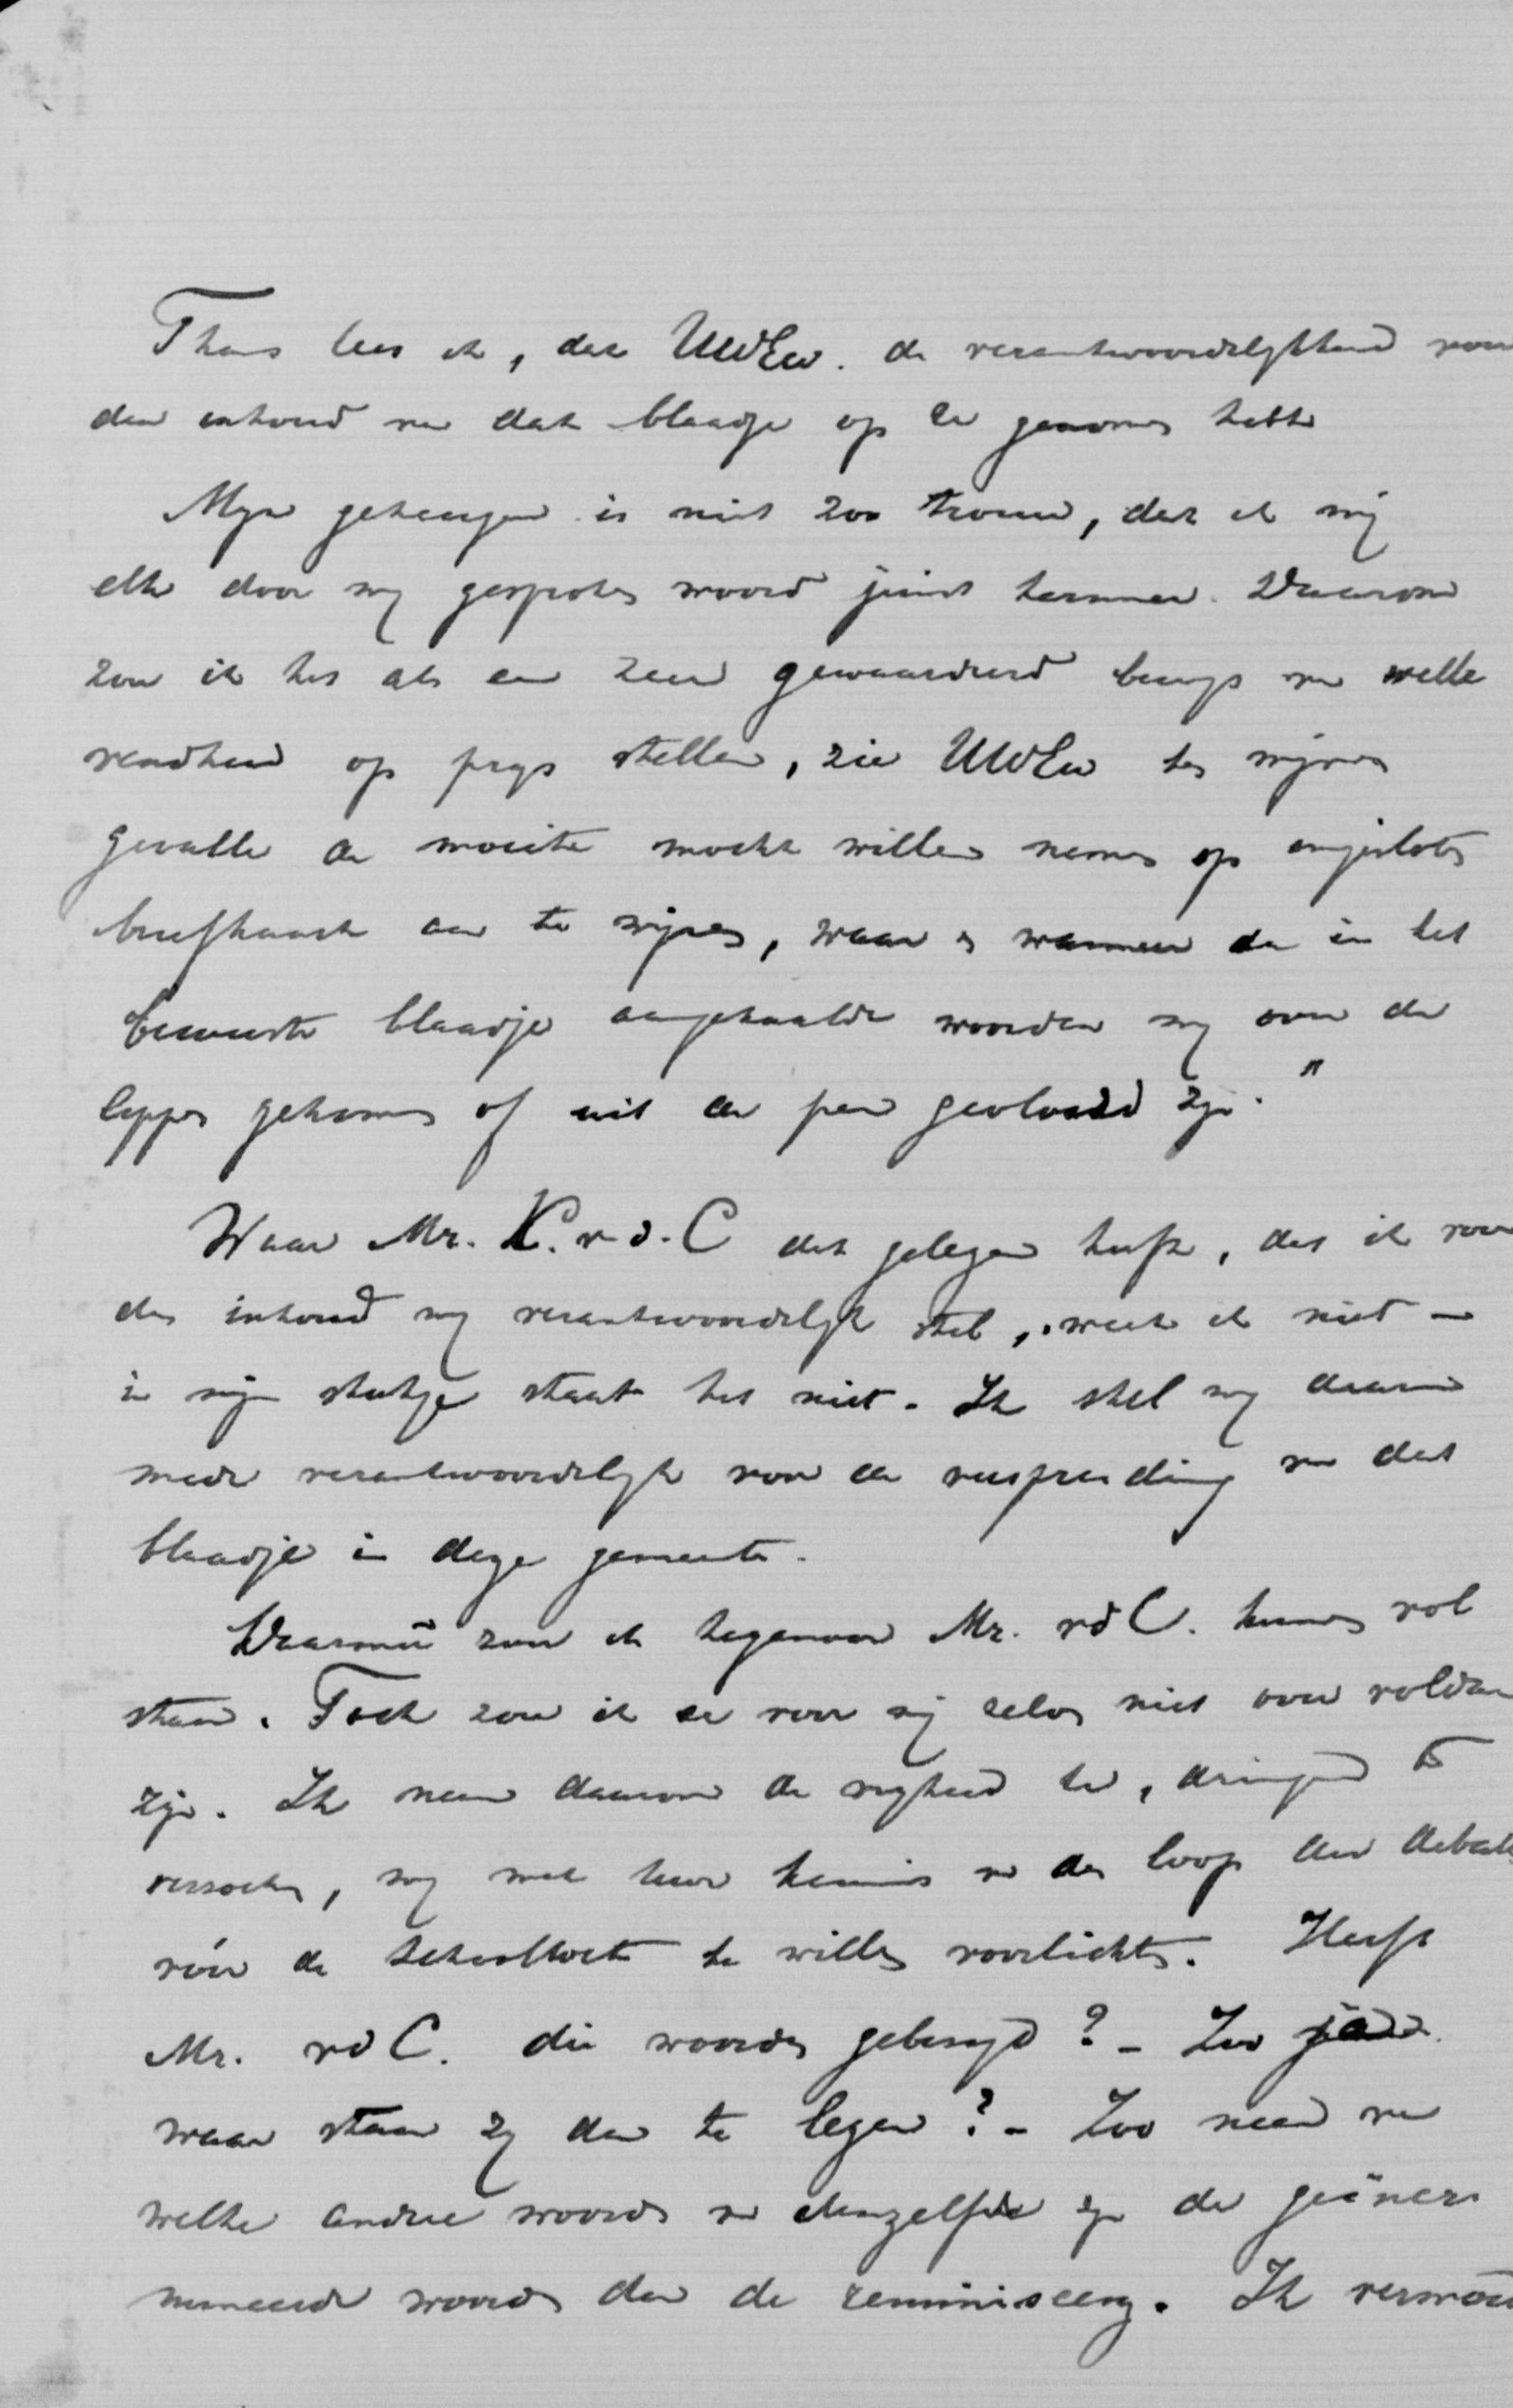 Thans lees ik, dat UWEw. de verantwoordelijkheid voor
den inhoud van dat blaadje op U genomen hebt.
Mijn geheugen is niet zoo trouw, dat ik mij
elk door mij gesproken woord juist herinner. Daarom
zou ik het als een zeer gewaardeerd bewijs van welle
vendheid op prijs stellen, zie UWEw ten mijnen
gevalle de moeite mocht willen nemen op ingesloten
briefkaart aan te wijzen, waar en wanneer de in het
bewuste blaadje aangehaalde woorden mij over de
lippen gekomen of uit de pen gevloeid zijn."
Waar Mr. K. v. d. C dat gelezen heeft, dat ik voor
den inhoud mij verantwoordelijk stel, weet ik niet –
in mijn stukje staat het niet. Ik stel mij daarin
mede verantwoordelijk voor de verspreiding van dat
blaadje in deze gemeente.
Daarmeê zou ik tegenover Mr. vd C. kunnen vol
staan. Toch zou ik er voor mij zelven niet over voldaan
zijn. Ik neem daarom de vrijheid U, dringend te
verzoeken, mij met uwe kennis van den loop der debatten
vóór de schoolwet te willen voorlichten. Heeft
Mr. vd C. die woorden gebezigd? – Zoo ja
waar staan zij dan te lezen? – Zoo neen van
welke andere woorden van denzelfde zijn de geïncri
mineerde woorden dan de reminiscenz. Ik vermoed